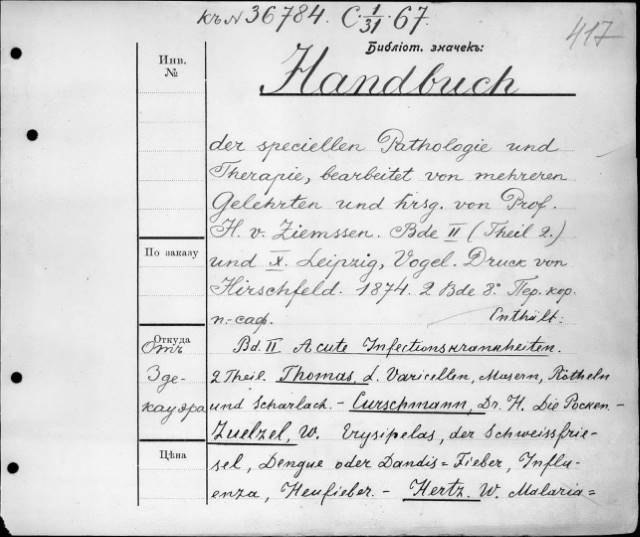 къ N 36784. C. 1/31. 67.
417
Библiот. значекъ:
Инв.
№
Handbuch
der speciellen Pathologie und
Therapie, bearbeitet von mehreren
Gelehrten und hrsg. von Prof.
H. v. Ziemssen. Bde II (Theil 2.)
По заказу
und X. Leipzig, Vogel. Druck von
Hirschfeld. 1874. 2 Bde 8° Пер. кор.
п.-саф. Enthält:
Откуда
Отъ
Здекауэра
Bd. II Acute Infectionskrankheiten.
2 Theil. Thomas, L. Varicellen, Masern, Rötheln
und Scharlach. - Curschmann, Dr. H. Die Pocken. -
Zuelzel, W. Erysipelas, der Schweissfrie-
Цѣна
sel, Dengue oder Dandis=Fieber, Influ-
enza, Heufieber. - Hertz. W. Malaria=